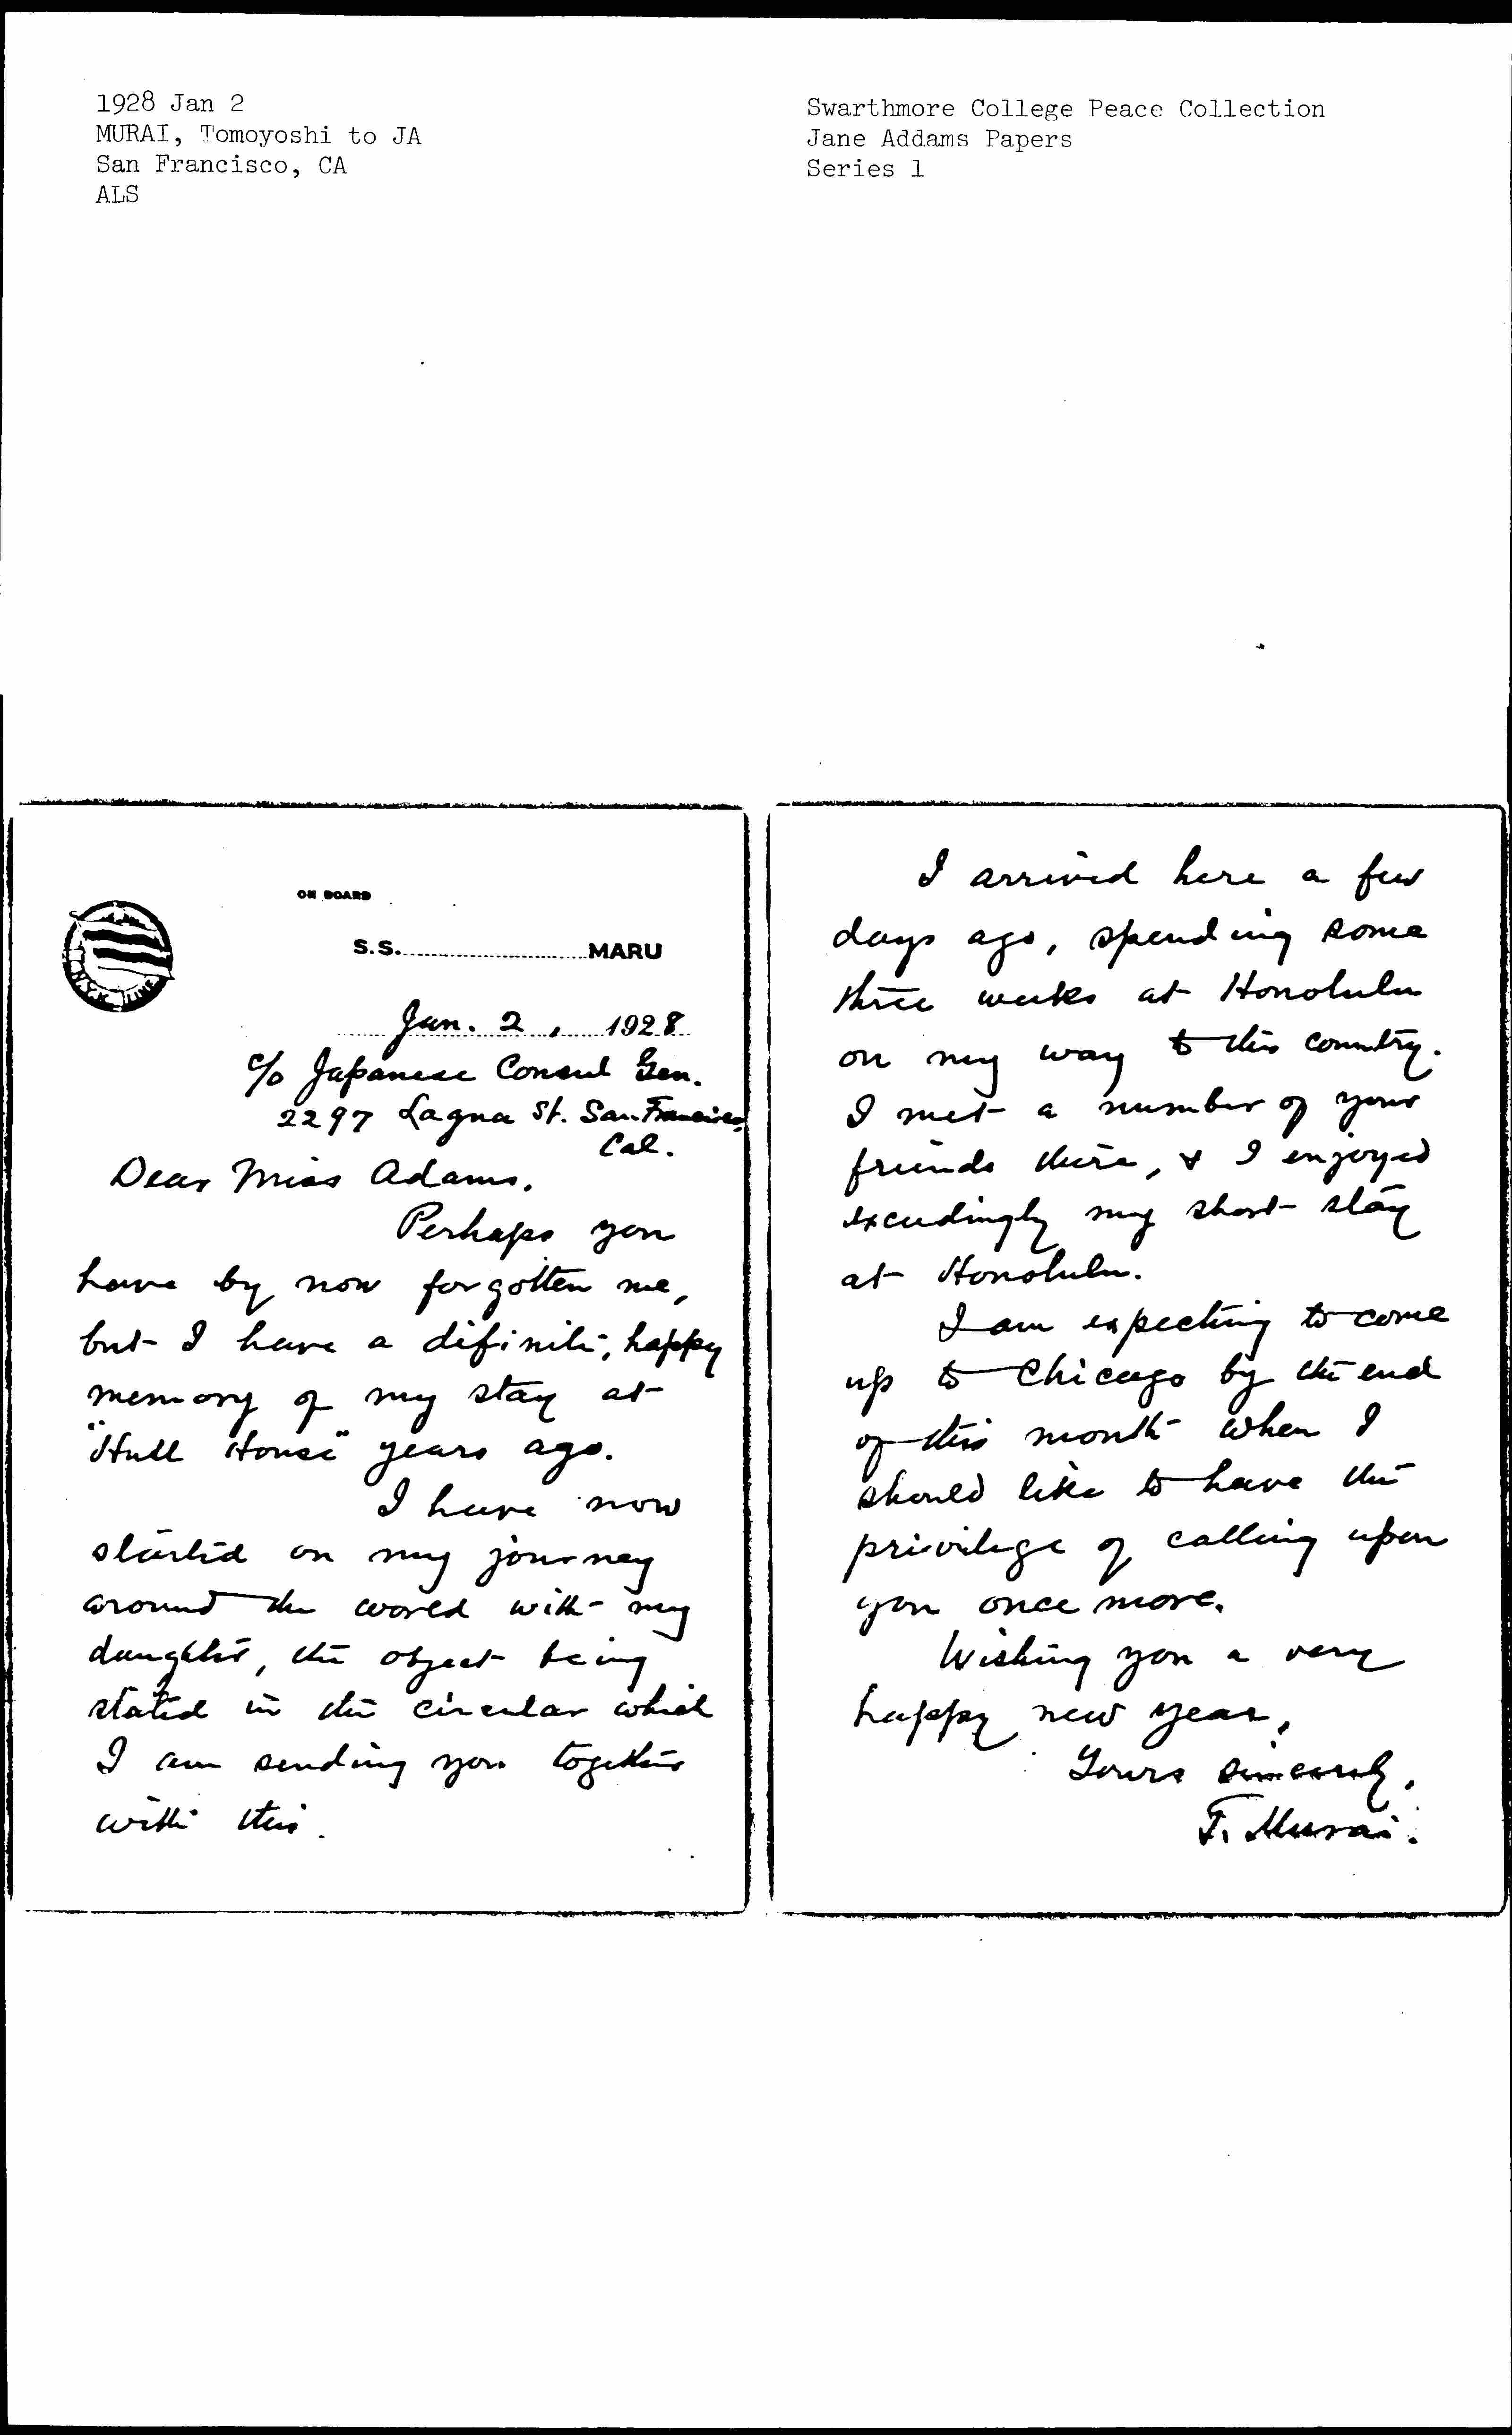 1928 Jan 2
MURAI, Tomoyoshi to JA
San Francisco, CA
ALS
Swarthmore College Peace Collection
Jane Addams Papers
Series 1
ON BOARD
S.S. MARU
N.Y.K. LINE
Jan. 2, 1928
c/o Japanese Consul Gen.
2297 Laguna St. San Francisco,
Cal.
Dear Miss Adams.
Perhaps you
have by now forgotten me,
but I have a definite, happy
memory of my stay at
"Hull House" years ago.
I have now
started on my journey
around the world with my
daughter, the object being
stated in the circular which
I am sending you together
with this.
I arrived here a few
days ago, spending some
three weeks at Honolulu
on my way to this country.
I met a number of your
friends there, & I enjoyed
exceedingly my short stay
at Honolulu.
I am expecting to come
up to Chicago by the end
of this month when I
should like to have the
privilege of calling upon
you once more.
Wishing you a very
happy new year,
Yours sincerely,
T. Murai.